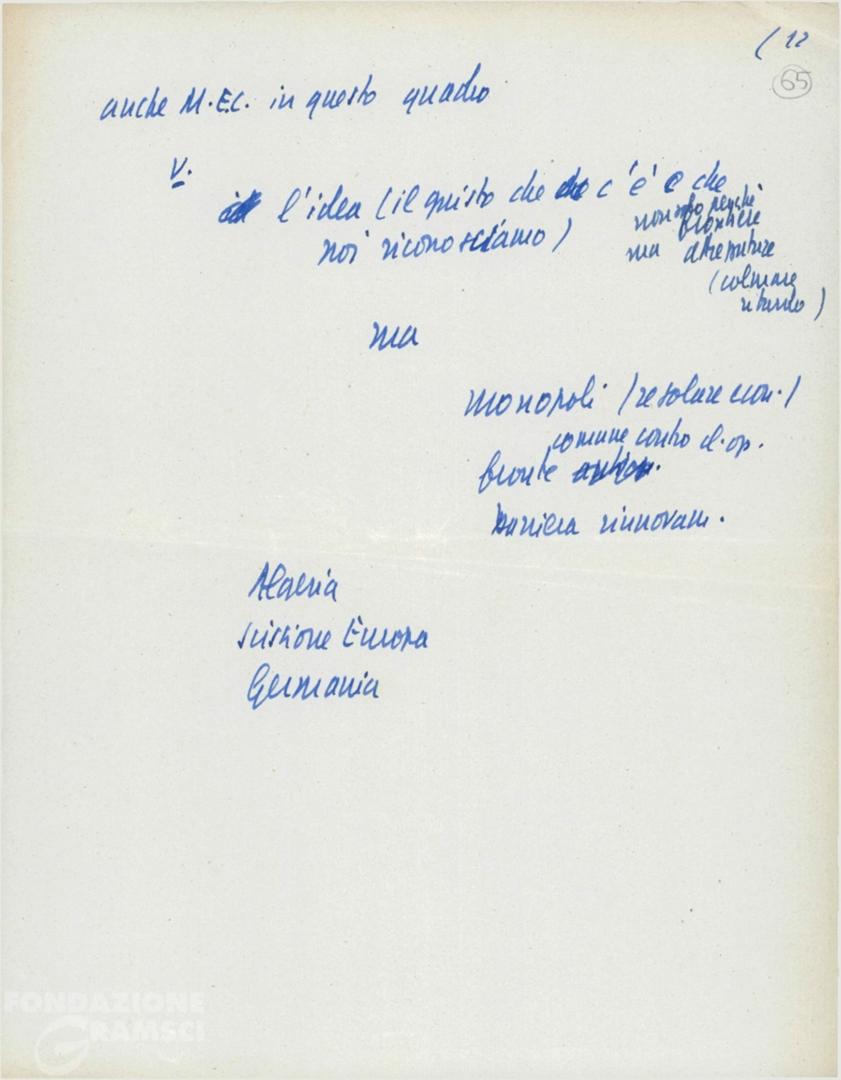 ( 12
65
anche M.E.C. in questo quadro
V.
l'idea (il giusto che c'è e che
noi riconosciamo)
non solo perché
frontiere
ma attrezzature
(colmare
ritardo)
ma
monopoli (
comune contro cl. op.
fronte
barriera rinnovam.
Algeria
scissione Europa
Germania
FONDAZIONE
GRAMSCI